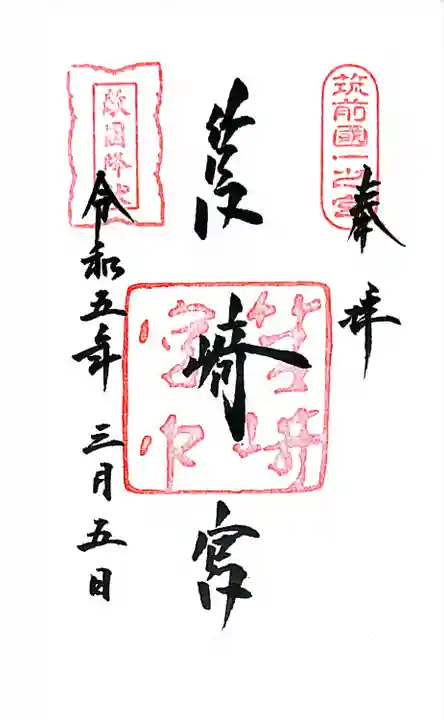 筑前國一之宮
奉拝
筥崎宮
敵國降伏
令和五年 三月五日